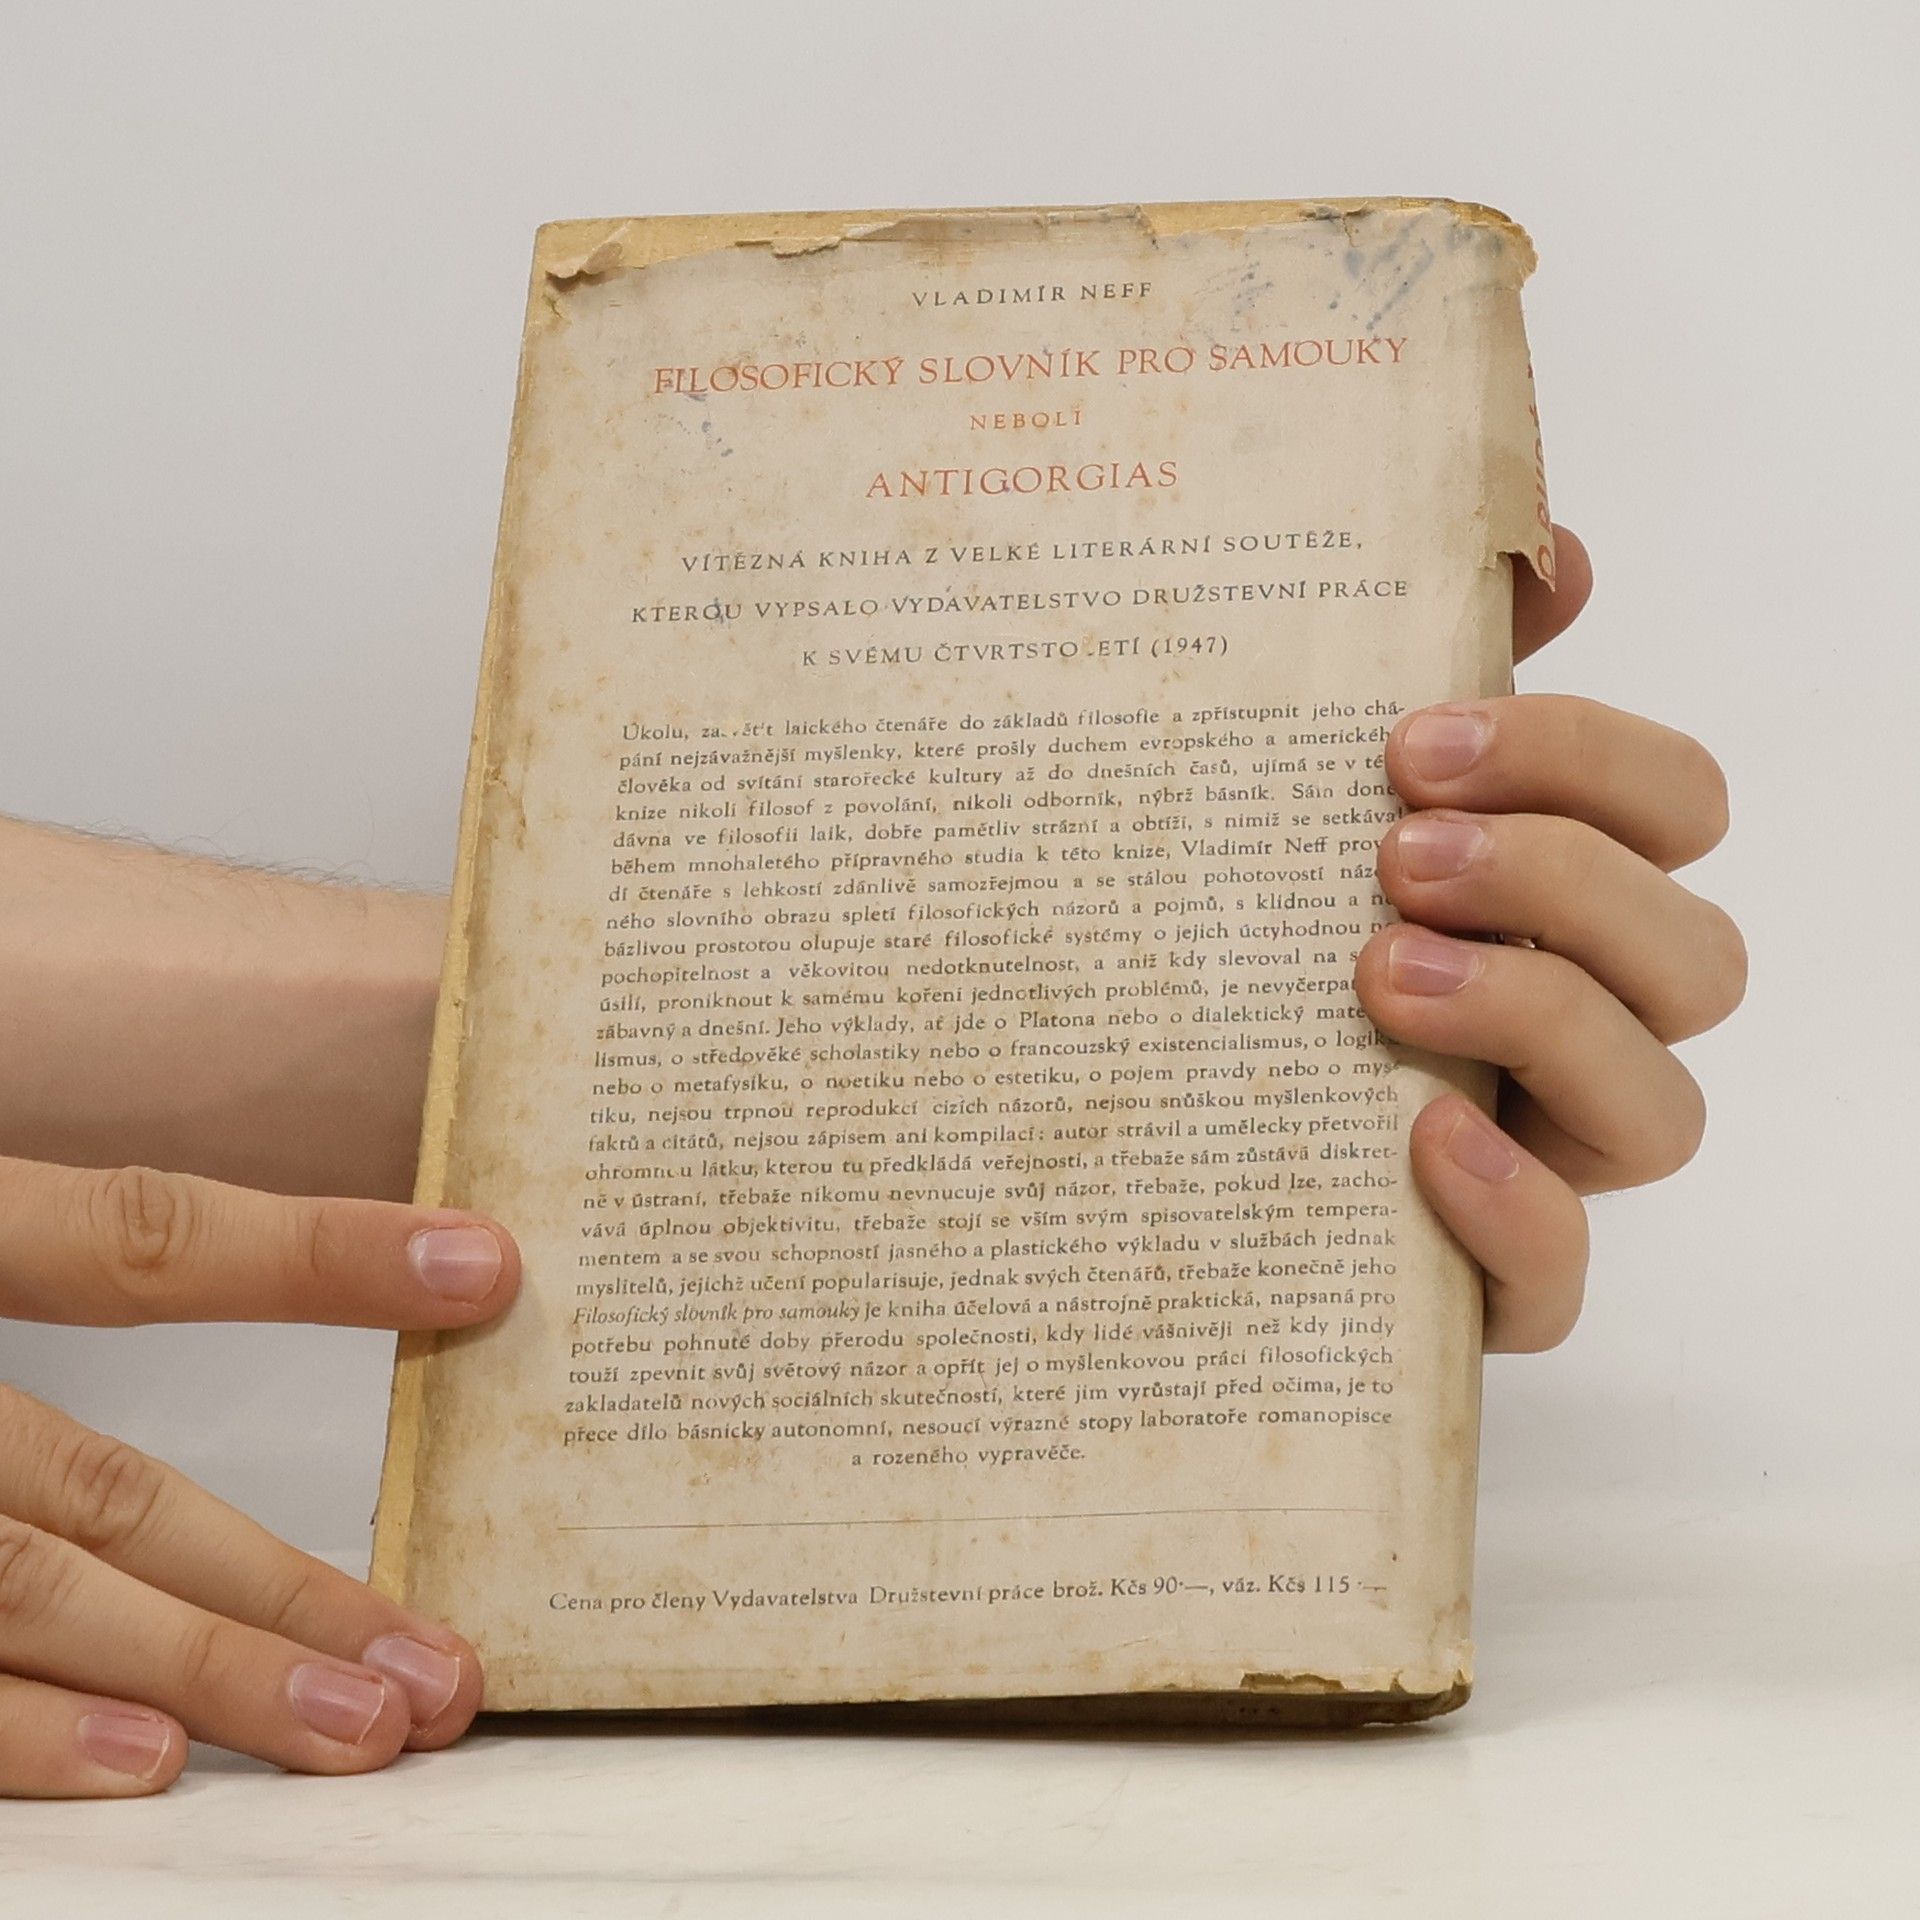 VLADIMÍR NEFF
FILOSOFICKÝ SLOVNÍK PRO SAMOUKY
NEBOLI
ANTIGORGIAS
VÍTĚZNÁ KNIHA Z VELKÉ LITERÁRNÍ SOUTĚŽE,
KTEROU VYPSALO VYDAVATELSTVO DRUŽSTEVNÍ PRÁCE
K SVÉMU (1947)
Úkolu, laického čtenáře do základů filosofie a zpřístupnit jeho chá-
pání nejzávažnější myšlenky, které prošly duchem evropského a
člověka od svítání starořecké kultury až do dnešních časů, ujímá se v
knize nikoli filosof z povolání, nikoli odborník, nýbrž básník. Sám
dávna ve filosofii laik, dobře pamětliv strázní a obtíží, s nimiž se setkával
během mnohaletého přípravného studia k této knize, Vladimír Neff
dí čtenáře s lehkostí zdánlivě samozřejmou a se stálou pohotovostí
ného slovního obrazu spletí filosofických názorů a pojmů, s klidnou a
bázlivou prostotou olupuje staré filosofické systémy o jejich úctyhodnou
pochopitelnost a věkovitou nedotknutelnost, a aniž kdy slevoval na
úsilí, proniknout k samému kořeni jednotlivých problémů, je
zábavný a dnešní. Jeho výklady, ať jde o Platona nebo o dialektický
lismus, o středověké scholastiky nebo o francouzský existencialismus, o logiku
nebo o metafysiku, o noetiku nebo o estetiku, o pojem pravdy nebo o mys-
tiku, nejsou trpnou reprodukcí cizích názorů, nejsou snůškou myšlenkových
faktů a citátů, nejsou zápisem ani kompilací: autor strávil a umělecky přetvořil
ohromnou látku, kterou tu předkládá veřejnosti, a třebaže sám zůstává diskret-
ně v ústraní, třebaže nikomu nevnucuje svůj názor, třebaže, pokud lze, zacho-
vává úplnou objektivitu, třebaže stojí se vším svým spisovatelským tempera-
mentem a se svou schopností jasného a plastického výkladu v službách jednak
myslitelů, jejichž učení popularisuje, jednak svých čtenářů, třebaže konečně jeho
Filosofický slovník pro samouky je kniha účelová a nástrojně praktická, napsaná pro
potřebu pohnuté doby přerodu společnosti, kdy lidé vášnivěji než kdy jindy
touží zpevnit svůj světový názor a opřít jej o myšlenkovou práci filosofických
zakladatelů nových sociálních skutečností, které jim vyrůstají před očima, je to
přece dílo básnicky autonomní, nesoucí výrazné stopy laboratoře romanopisce
a rozeného vypravěče.
Cena pro členy Vydavatelstva Družstevní práce brož. Kčs 90·—, váz. Kčs 115·—